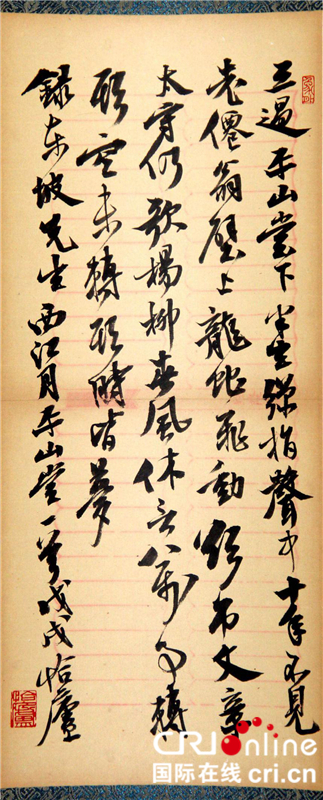 三過平山堂下半生彈指聲中十年不見
老僊翁壁上龍蛇飛動欲吊文章
太守仍歌楊柳春風休言万事轉
頭空未轉頭時皆夢
錄東坡先生西江月平山堂一首戊戌怡廬
CRIonline
国际在线 cri.cn